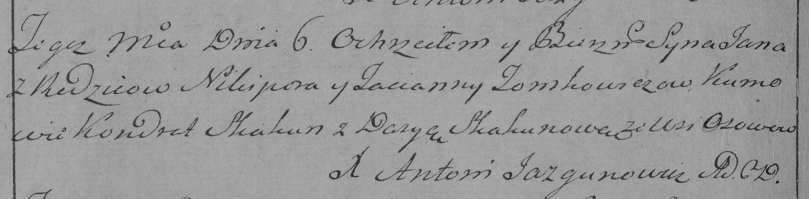 Tegoz Mca Dnia 6. Ochrzcilem y Bierzm: Syna Jana
z Redzicow Nikipora y Tacianny Tomkowiczow. Kumo
wie Kondrat Skakun z Daryą Skakunową ze Wsi Osowow
X Antoni Jazgunowicz